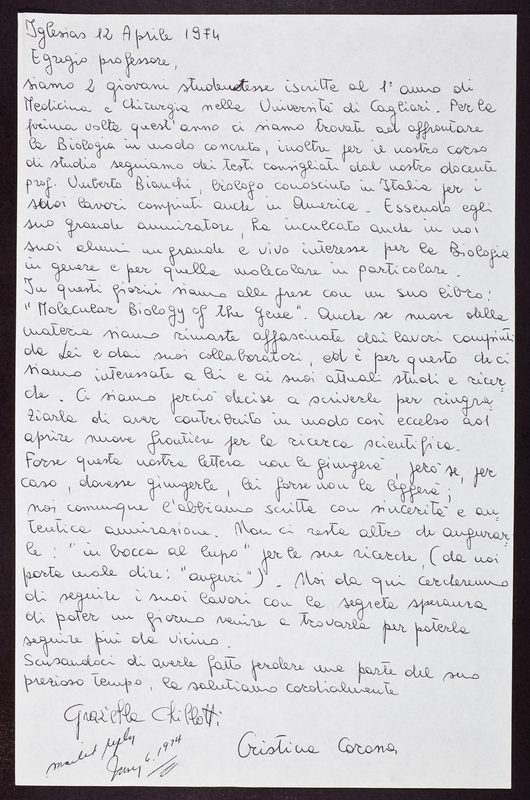 Iglesias 12 Aprile 1974
Egregio professore,
siamo 2 giovani studentesse iscritte al 1° anno di
Medicina e Chirurgia nella Università di Cagliari. Per la
prima volta quest'anno ci siamo trovate ad affrontare
la Biologia in modo concreto, inoltre per il nostro corso
di studio seguiamo dei testi consigliati dal nostro docente
prof. Umberto Bianchi, biologo conosciuto in Italia per i
suoi lavori compiuti anche in America. Essendo egli
suo grande ammiratore, ha inculcato anche in noi
suoi alunni un grande e vivo interesse per la Biologia
in genere e per quella molecolare in particolare.
In questi giorni siamo alle prese con un suo libro:
"Molecular Biology of the gene". Anche se nuove della
materia siamo rimaste affascinate dai lavori compiuti
da Lei e dai suoi collaboratori, ed è per questo che ci
siamo interessate a lei e ai suoi attuali studi e ricer-
che. Ci siamo perciò decise a scriverle per ringra-
ziarla di aver contribuito in modo così eccelso ad
aprire nuove frontiere per la ricerca scientifica.
Forse questa nostra lettera non le giungerà, però se, per
caso, dovesse giungerle, lei forse non la leggerà;
noi comunque l'abbiamo scritta con sincerità e au-
tentica ammirazione. Non ci resta altro che augurar-
le: "in bocca al lupo" per le sue ricerche, (da noi
porta male dire: "auguri")". Noi da qui cercheremo
di seguire i suoi lavori con la segreta speranza
di poter un giorno venire a trovarla per poterla
seguire più da vicino.
Scusandoci di averle fatto perdere una parte del suo
prezioso tempo, la salutiamo cordialmente
Graziella Chillotti
Cristina Corona
mailed reply
June 6, 1974